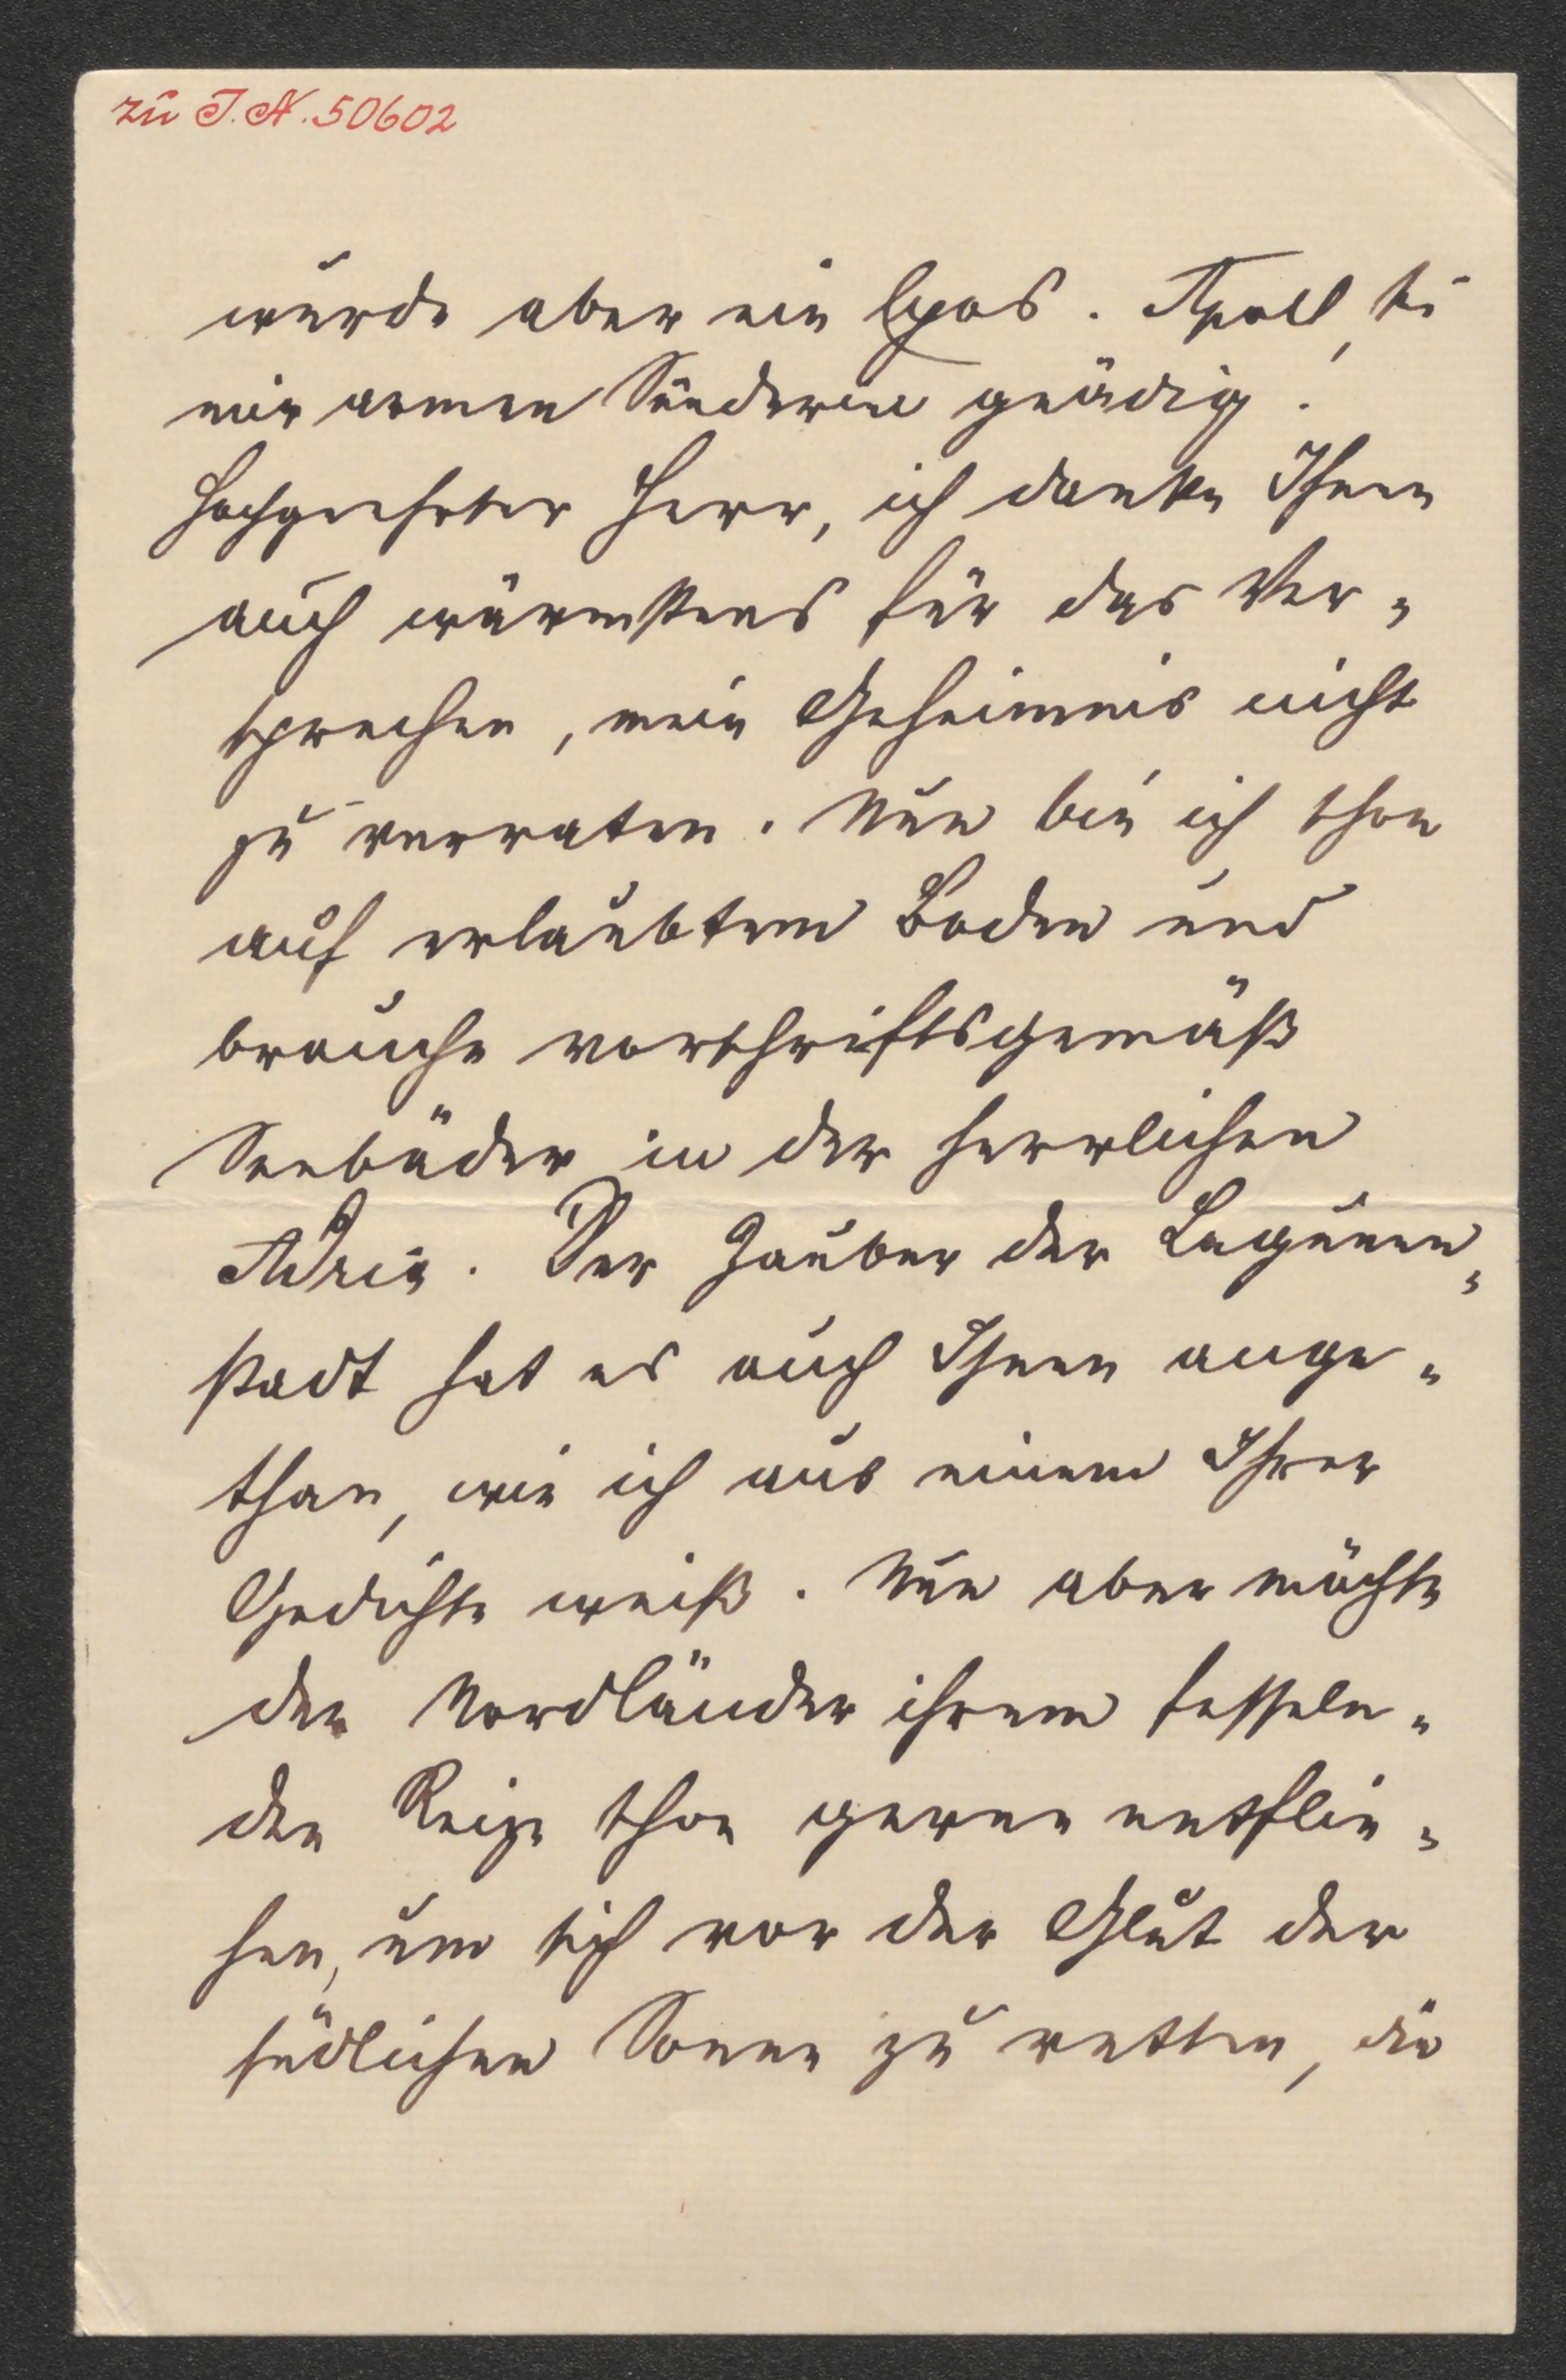 zu I.N. 50602
wurde aber ein Epos. Apoll, sei
mir armen Sünderin gnädig!
Hochgeehrter Herr, ich danke Ihnen
auch wärmstens für das Ver-
sprechen, mein Geheimnis nicht
zu verraten. Nun bin ich schon
auf erlaubtem Boden und
brauche vorschriftsgemäß
Seebäder in der herrlichen
Adria. Der Zauber der Lagunen-
stadt hat es auch Ihnen ange-
than, wie ich aus einem Ihrer
Gedichte weiß. Nun aber möchte
der Nordländer ihrem fesseln-
den Reize schon gerne entflie-
hen, um sich vor der Glut der
südlichen Sonne zu retten, die